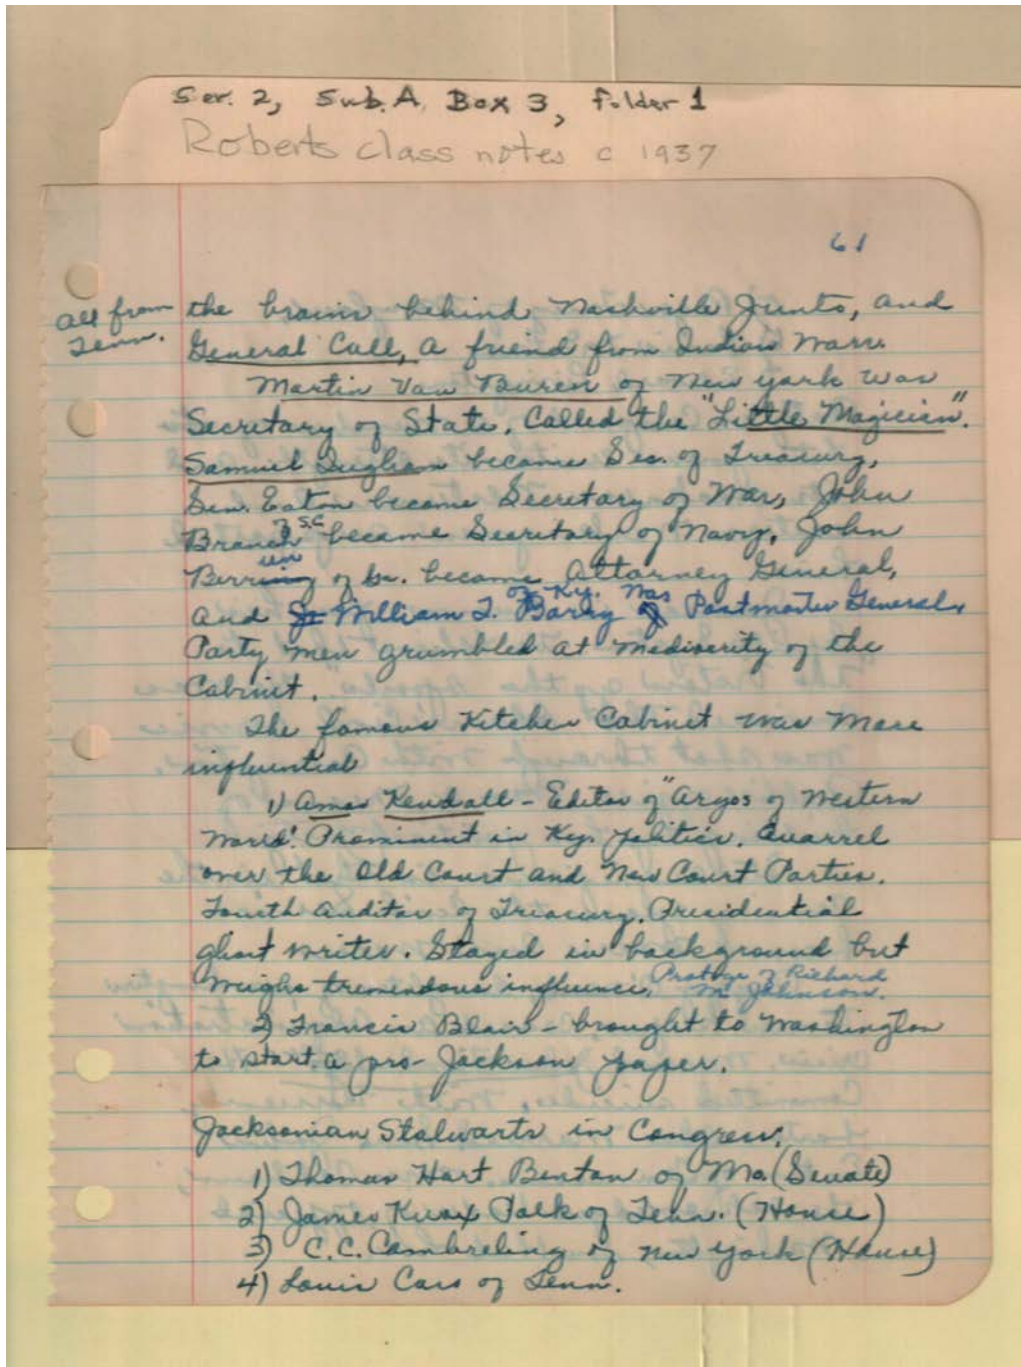 Ser. 2, Sub. A. Box 3, folder 1
Roberts class notes c 1937
61
all from
Tenn.
the brains behind Nashville Junto, and
General Call, a friend from Indian Wars.
Martin Van Buren of New York was
Secretary of State. Called the "Little Magician".
Samuel Ingham became Sec. of Treasury,
Sen. Eaton became Secretary of War, John
Branch of S.C became Secretary of Navy, John
Berrien of Ga. became Attorney General,
and William T. Barry of Ky. was Postmaster General.
Party men grumbled at mediocrity of the
Cabinet.
The famous Kitchen Cabinet was more
influential
1) Amos Kendall - Editor of "Argos of Western
World". Prominent in Ky. politics. Quarrel
over the Old Court and New Court Parties.
Fourth Auditor of Treasury. Presidential
ghost writer. Stayed in background but
weighs tremendous influence. Protege of Richard
M Johnson.
2) Francis Blair - brought to Washington
to start a pro-Jackson paper.
Jacksonian Stalwarts in Congress.
1) Thomas Hart Benton of Mo. (Senate)
2) James Knox Polk of Tenn. (House)
3) C.C. Cambreling of New York (House)
4) Louis Cass of Tenn.